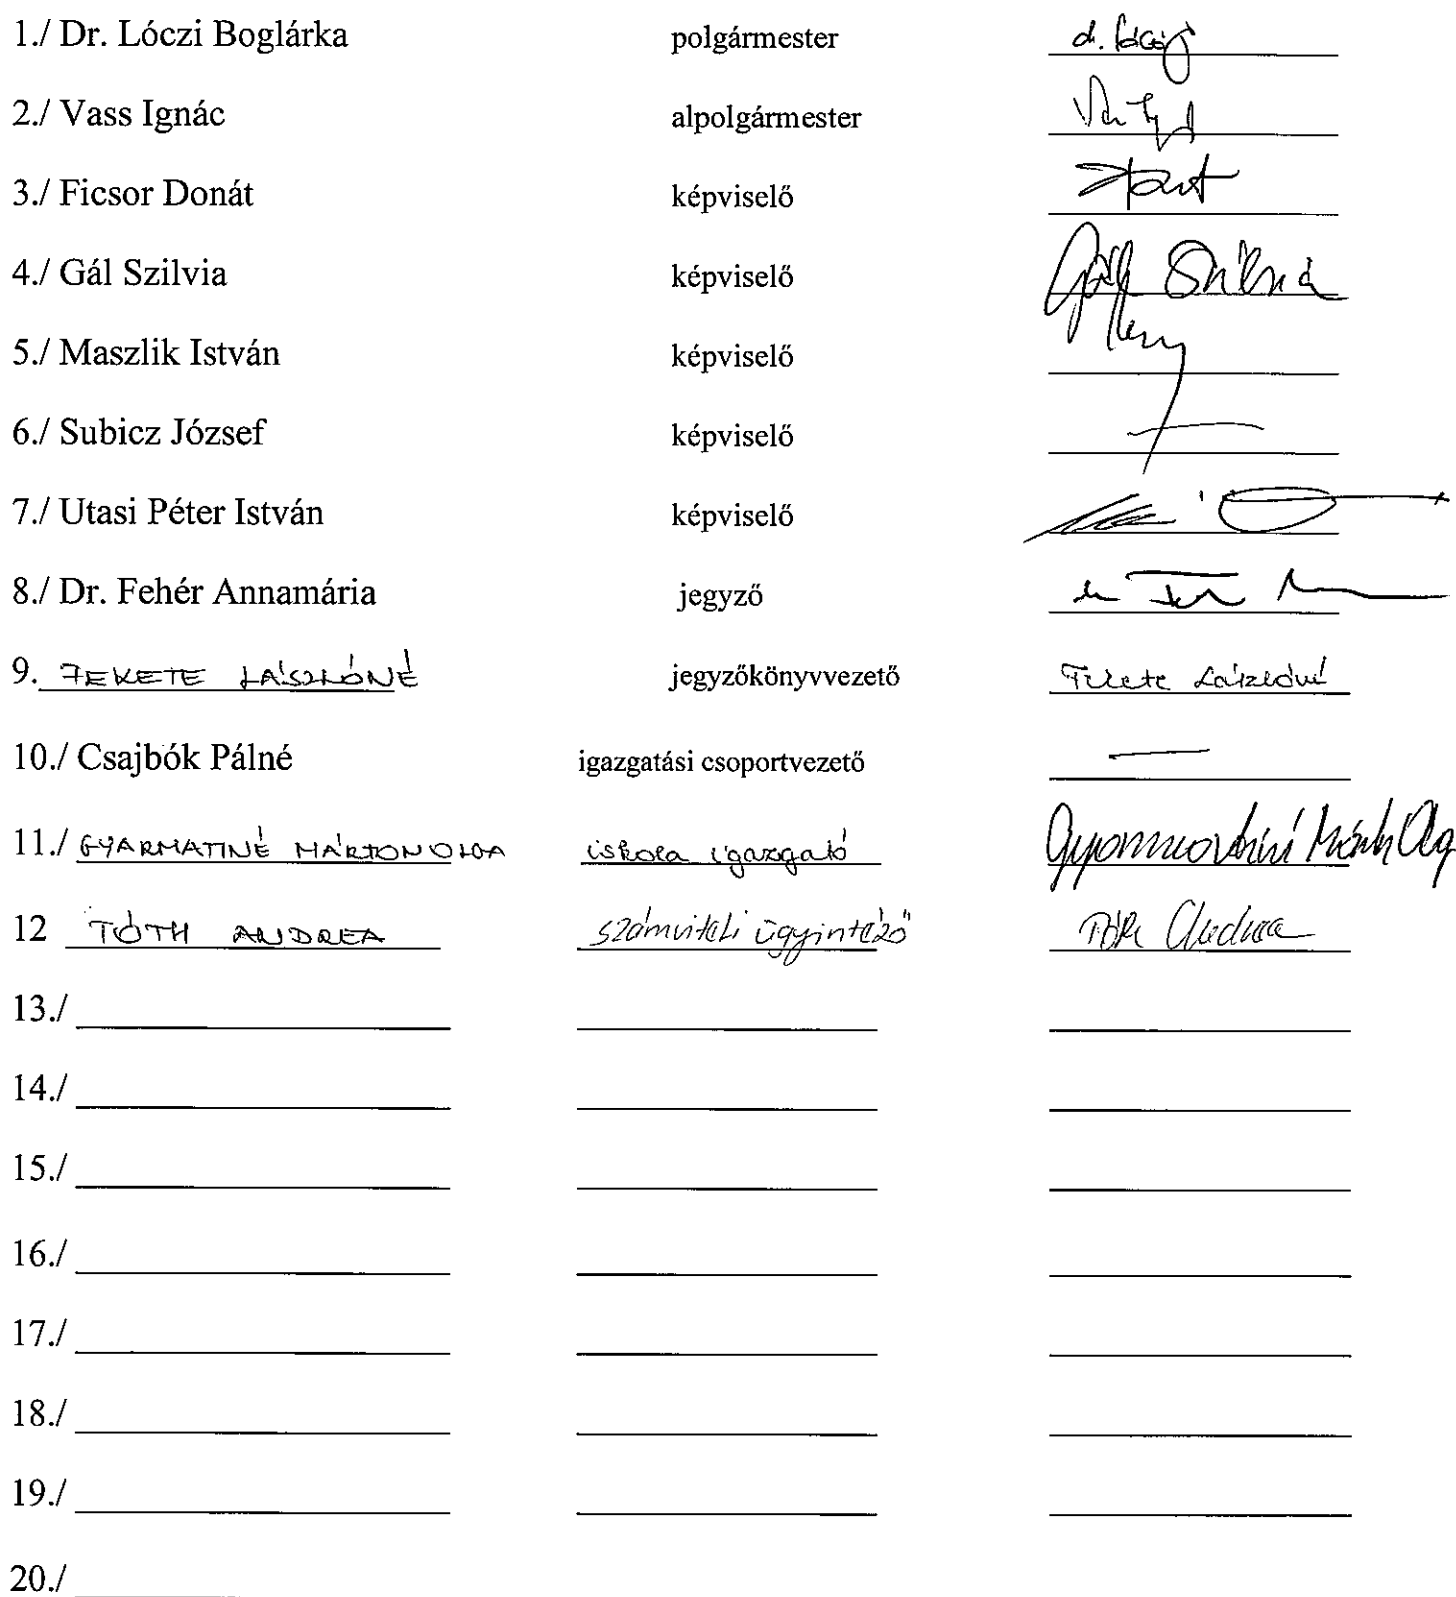 1./ Dr. Lóczi Boglárka polgármester
2./ Vass Ignác alpolgármester
3./ Ficsor Donát képviselő
4./ Gál Szilvia képviselő Gál Szilvia
5./ Maszlik István képviselő
6./ Subicz József képviselő
7./ Utasi Péter István képviselő
8./ Dr. Fehér Annamária jegyző
9. FEKETE LÁSZLÓNÉ jegyzőkönyvvezető Fekete Lászlóné
10./ Csajbók Pálné igazgatási csoportvezető —
11./ GYARMATINÉ MÁRTON OLGA iskola igazgató
12 TÓTH ANDREA számviteli ügyintéző Tóth Andrea
13./
14./
15./
16./
17./
18./
19./
20./